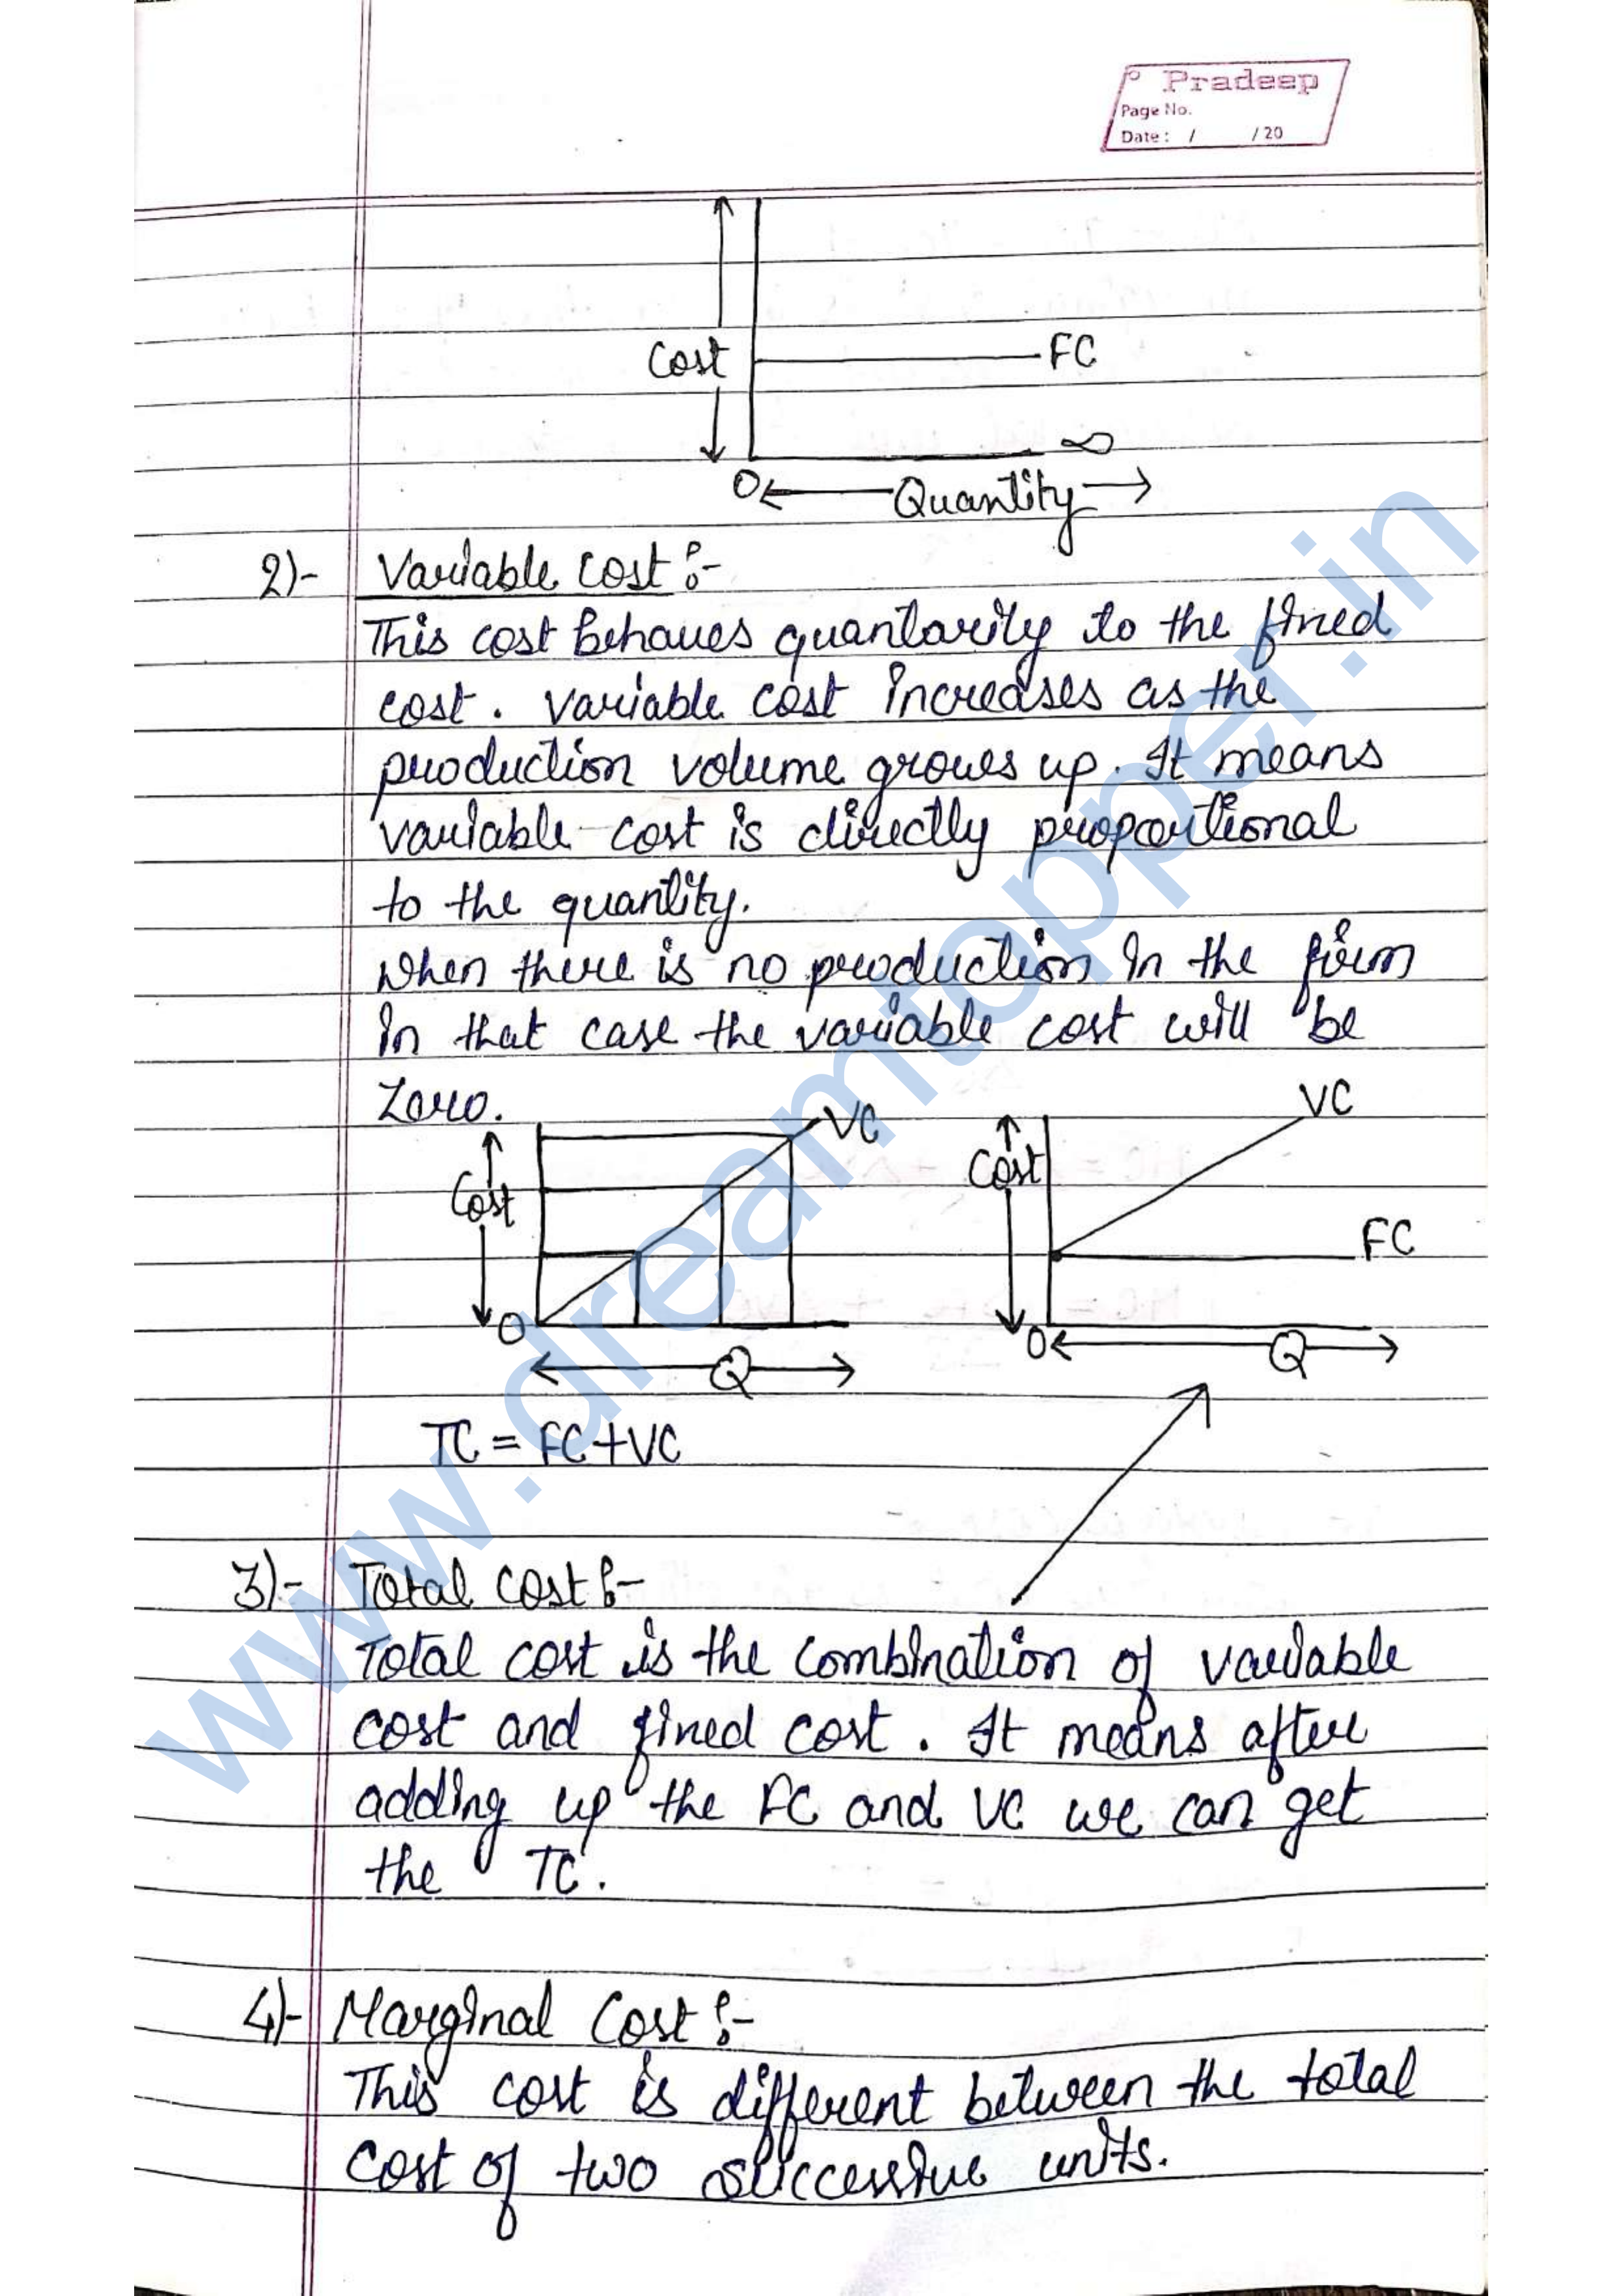 Pradeep
Page No.
Date : / /20
Cost
FC
∞
O
Quantity
2)- Variable Cost :-
This cost behaves quantarity to the fined
cost. Variable cost increases as the
production volume grows up. It means
variable cost is directly proportional
to the quantity.
When there is no production in the firm
in that case the variable cost will be
Zero.
VC
Cost
O
Q
VC
Cost
FC
O
Q
TC = FC+VC
3)- Total Cost :-
Total cost is the combination of variable
cost and fined cost. It means after
adding up the FC and VC we can get
the TC.
4)- Marginal Cost :-
This cost is different between the total
cost of two successive units.
www.dreamtopper.in